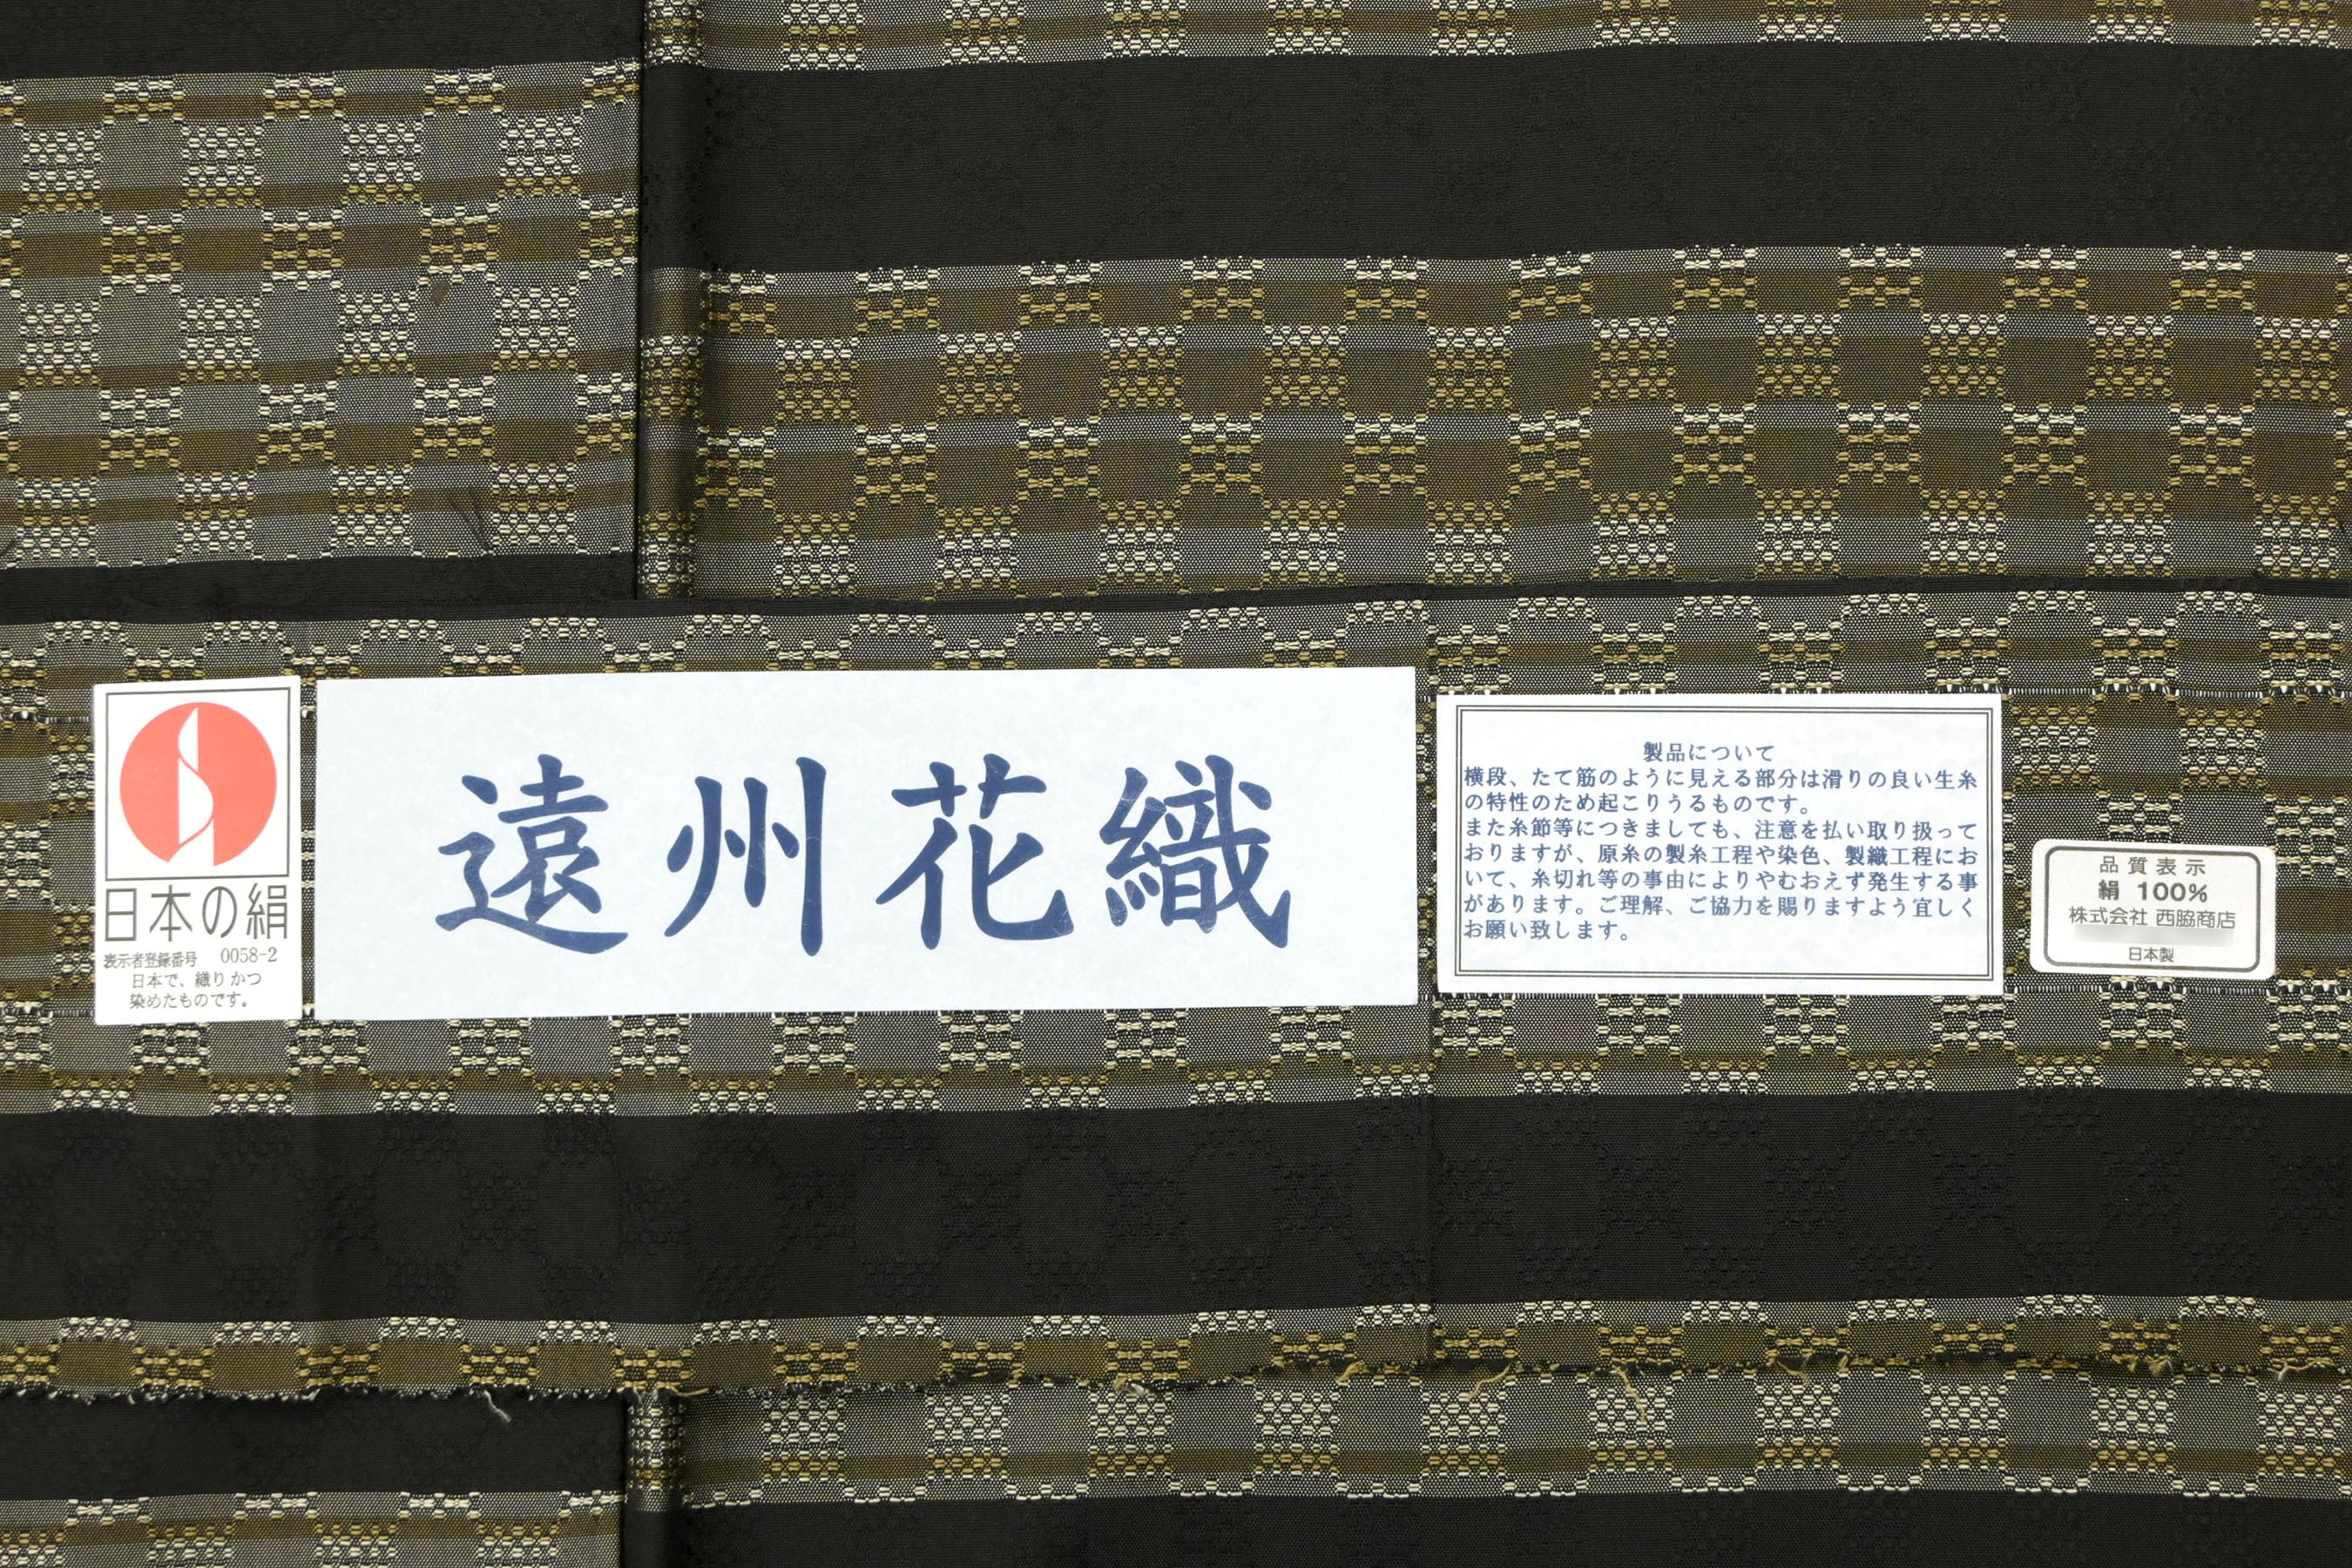 日本の絹
表示者登録番号 0058-2
日本で、織りかつ
染めたものです。
遠州花織
製品について
横段、たて筋のように見える部分は滑りの良い生糸
の特性のため起こりうるものです。
また糸節等につきましても、注意を払い取り扱って
おりますが、原糸の製糸工程や染色、製織工程にお
いて、糸切れ等の事由によりやむおえず発生する事
があります。ご理解、ご協力を賜りますよう宜しく
お願い致します。
品質表示
絹 100%
株式会社 西脇商店
日本製